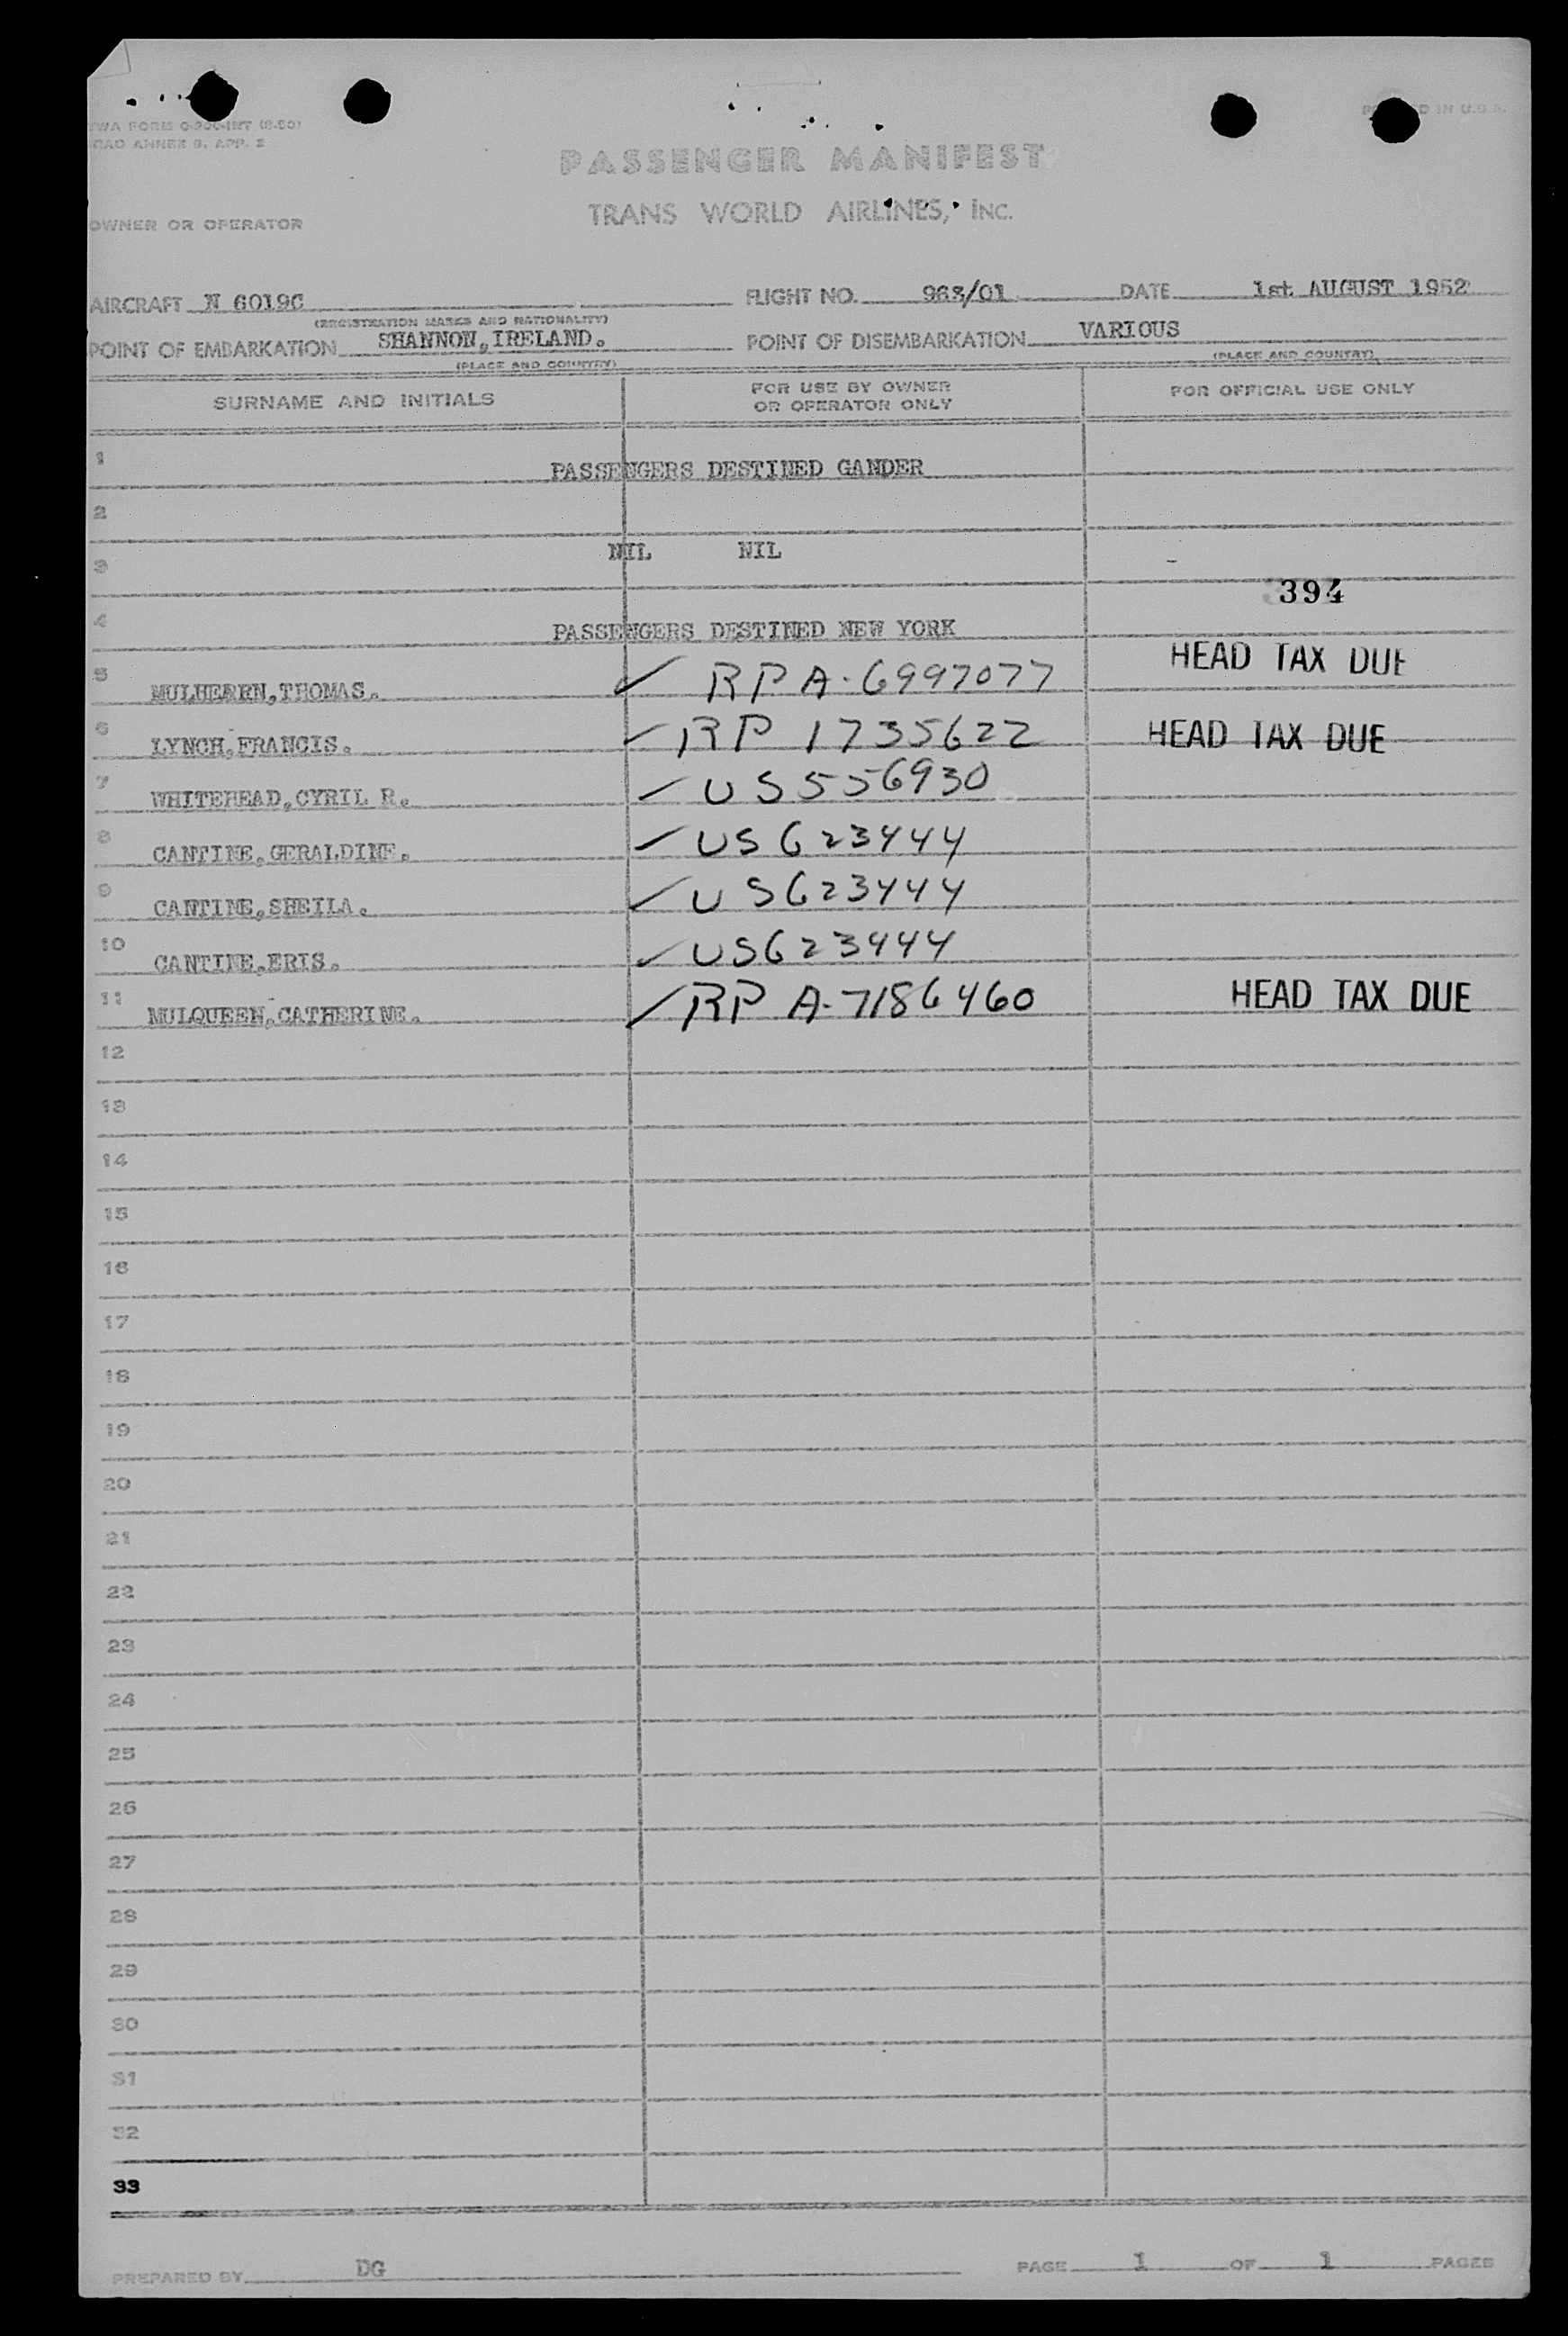 TWA FORM O-200-INT (8-50)
ICAO ANNEX 9, APP. 2
PRINTED IN U.S.A.
PASSENGER MANIFEST
OWNER OR OPERATOR
TRANS WORLD AIRLINES, INC.
AIRCRAFT N 6019C FLIGHT NO. 963/01 DATE 1st AUGUST 1952
(REGISTRATION MARKS AND NATIONALITY)
POINT OF EMBARKATION SHANNON, IRELAND. POINT OF DISEMBARKATION VARIOUS
(PLACE AND COUNTRY) (PLACE AND COUNTRY)
SURNAME AND INITIALS FOR USE BY OWNER OR OPERATOR ONLY FOR OFFICIAL USE ONLY
1 PASSENGERS DESTINED GANDER
2
3 NIL NIL
394
4 PASSENGERS DESTINED NEW YORK
5 MULHEARN,THOMAS. ✓ RP A-6997077 HEAD TAX DUE
6 LYNCH,FRANCIS. ✓ RP 1735622 HEAD TAX DUE
7 WHITEHEAD,CYRIL R. ✓ US 556930
8 CANTINE,GERALDINE. ✓ US 623444
9 CANTINE,SHEILA. ✓ US 623444
10 CANTINE,ERIS. ✓ US 623444
11 MULQUEEN,CATHERINE. ✓ RP A-7186460 HEAD TAX DUE
12
13
14
15
16
17
18
19
20
21
22
23
24
25
26
27
28
29
30
31
32
33
PREPARED BY DG PAGE 1 OF 1 PAGES